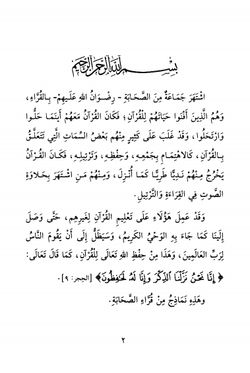 بِسْمِ اللَّهِ الرَّحْمَنِ الرَّحِيمِ
اشْتَهَرَ جَمَاعَةٌ مِنَ الصَّحَابَةِ - رِضْوَانُ اللهِ عَلَيْهِمْ - بِالقُرَّاءِ،
وَهُمُ الَّذِينَ أَفْنَوا حَيَاتَهُمْ لِلْقُرْآنِ؛ فَكَانَ القُرْآنُ مَعَهُمْ أَيْنَمَا حَلُّوا
وَارْتَحَلُوا، وَقَدْ غَلَبَ عَلَى كَثِيرٍ مِنْهُمْ بَعْضُ السِّمَاتِ الَّتِي تَتَعَلَّقُ
بِالقُرْآنِ، كَالاهْتِمَامِ بِجَمْعِهِ، وَحِفْظِهِ، وَتَرْتِيلِهِ، فَكَانَ القُرْآنُ
يَخْرُجُ مِنْهُمْ نَدِيًّا طَرِيًّا كَمَا أُنْزِلَ، وَمِنْهُمْ مَنِ اشْتَهَرَ بِحَلَاوَةِ
الصَّوتِ فِي القِرَاءَةِ وَالتَّرْتِيلِ.
وَقَدْ عَمِلَ هَؤُلَاءِ عَلَى تَعْلِيمِ القُرْآنِ لِغَيرِهِم، حَتَّى وَصَلَ
إِلَينَا كَمَا جَاءَ بِهِ الوَحْيُ الكَرِيمُ، وَسَيَظَلُّ إِلَى أَنْ يَقُومَ النَّاسُ
لِرَبِّ العَالَمِينَ، وَهَذَا مِنْ حِفْظِ اللهِ تَعَالَى لِلْقُرْآنِ، كَمَا قَالَ تَعَالَى:
﴿ إِنَّا نَحْنُ نَزَّلْنَا الذِّكْرَ وَإِنَّا لَهُ لَحَافِظُونَ﴾ [الحِجر: ٩].
وَهَذِهِ نَمَاذِجُ مِنْ قُرَّاءِ الصَّحَابَةِ.
٢